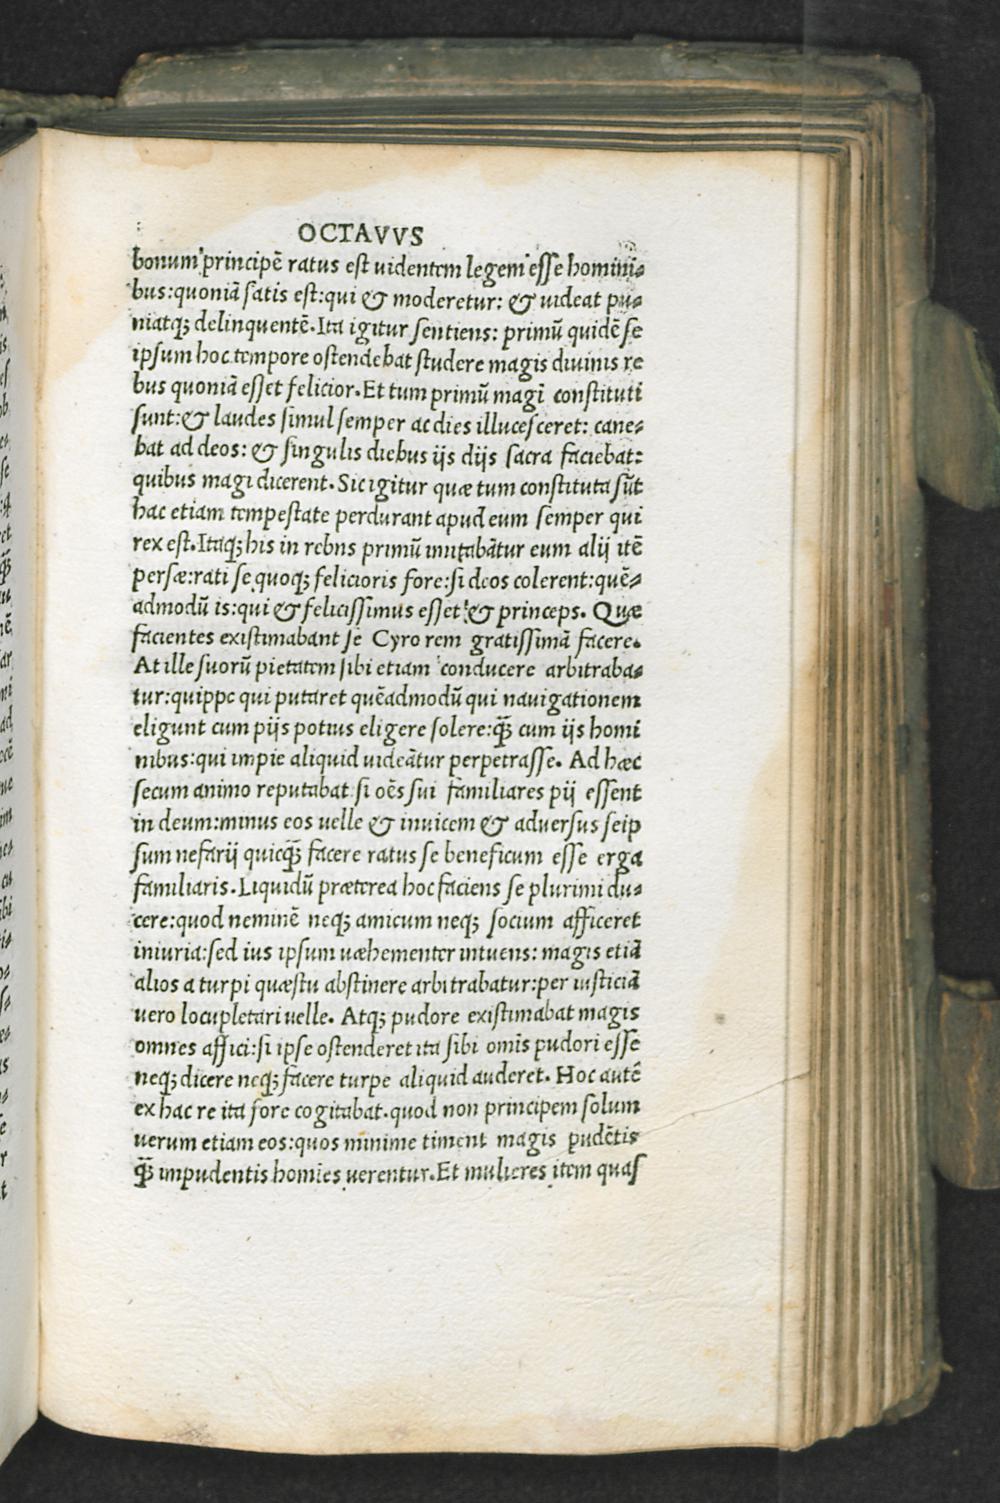 OCTAVVS
bonum principē ratus est uidentem legem esse homini-
bus:quoniā satis est:qui & moderetur: & uideat pu-
niatq; delinquentē.Ita igitur sentiens: primū quidē se
ipsum hoc tempore ostendebat studere magis diuinis re
bus quoniā esset felicior.Et tum primū magi constituti
sunt:& laudes simul semper ac dies illucesceret: cane-
bat ad deos: & singulis diebus ijs dijs sacra faciebat:
quibus magi dicerent.Sic igitur quæ tum constituta sūt
hac etiam tempestate perdurant apud eum semper qui
rex est.Itaq; his in rebns primū imitabātur eum alij itē
persæ:rati se quoq; felicioris fore:si deos colerent:quē-
admodū is:qui & felicissimus esset & princeps. Quæ
facientes existimabant se Cyro rem gratissimā facere.
At ille suorū pietatem sibi etiam conducere arbitraba-
tur:quippe qui putaret quēadmodū qui nauigationem
eligunt cum pijs potius eligere solere:q̄ȝ cum ijs homi
nibus:qui impie aliquid uideātur perpetrasse. Ad hæc
secum animo reputabat si oēs sui familiares pij essent
in deum:minus eos uelle & inuicem & aduersus seip
sum nefarij quicq̄ȝ facere ratus se beneficum esse erga
familiaris.Liquidū præterea hoc faciens se plurimi du-
cere:quod neminē neq; amicum neq; socium afficeret
iniuria:sed ius ipsum uæhementer intuens: magis etiā
alios a turpi quæstu abstinere arbitrabatur:per iusticiā
uero locupletari uelle. Atq; pudore existimabat magis
omnes affici:si ipse ostenderet ita sibi omīs pudori esse
neq; dicere neq; facere turpe aliquid auderet. Hoc autē
ex hac re ita fore cogitabat.quod non principem solum
uerum etiam eos:quos minime timent magis pudētis
q̄ȝ impudentis homīes uerentur.Et mulieres item quas